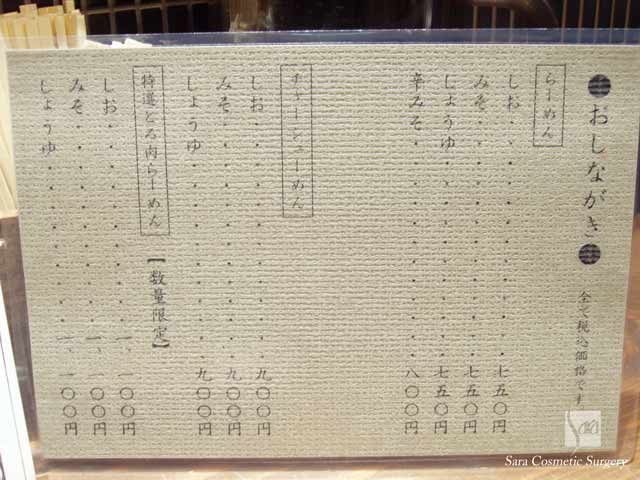 おしながき
全て税込価格です
らーめん
しお・・・・・・・・・・・七五〇円
みそ・・・・・・・・・・・七五〇円
しょうゆ・・・・・・・・・七五〇円
辛みそ・・・・・・・・・・八〇〇円
チャーシューめん
しお・・・・・・・・・・・九〇〇円
みそ・・・・・・・・・・・九〇〇円
しょうゆ・・・・・・・・・九〇〇円
特選とろ肉らーめん【数量限定】
しお・・・・・・・・・・一、一〇〇円
みそ・・・・・・・・・・一、一〇〇円
しょうゆ・・・・・・・・一、一〇〇円
Sara Cosmetic Surgery